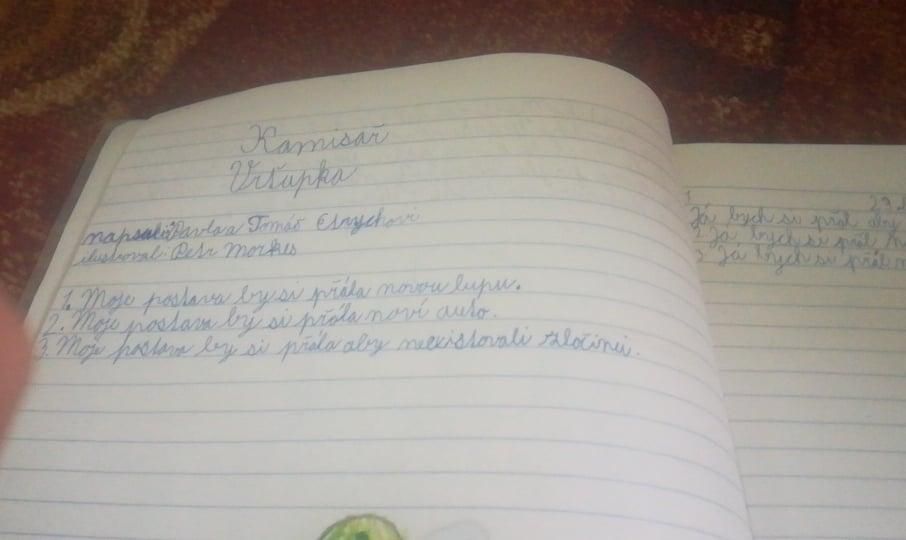 Komisař
Vrťapka
napsali: Pavla a Tomáš Etrychovi
ilustroval: Petr Morkes
1. Moje postava by si přála novou lupu.
2. Moje postava by si přála noví auto.
3. Moje postava by si přála aby neexistovali zločinci.
1
Já bych si přál aby
Já bych si přál
3 Já bych si přál